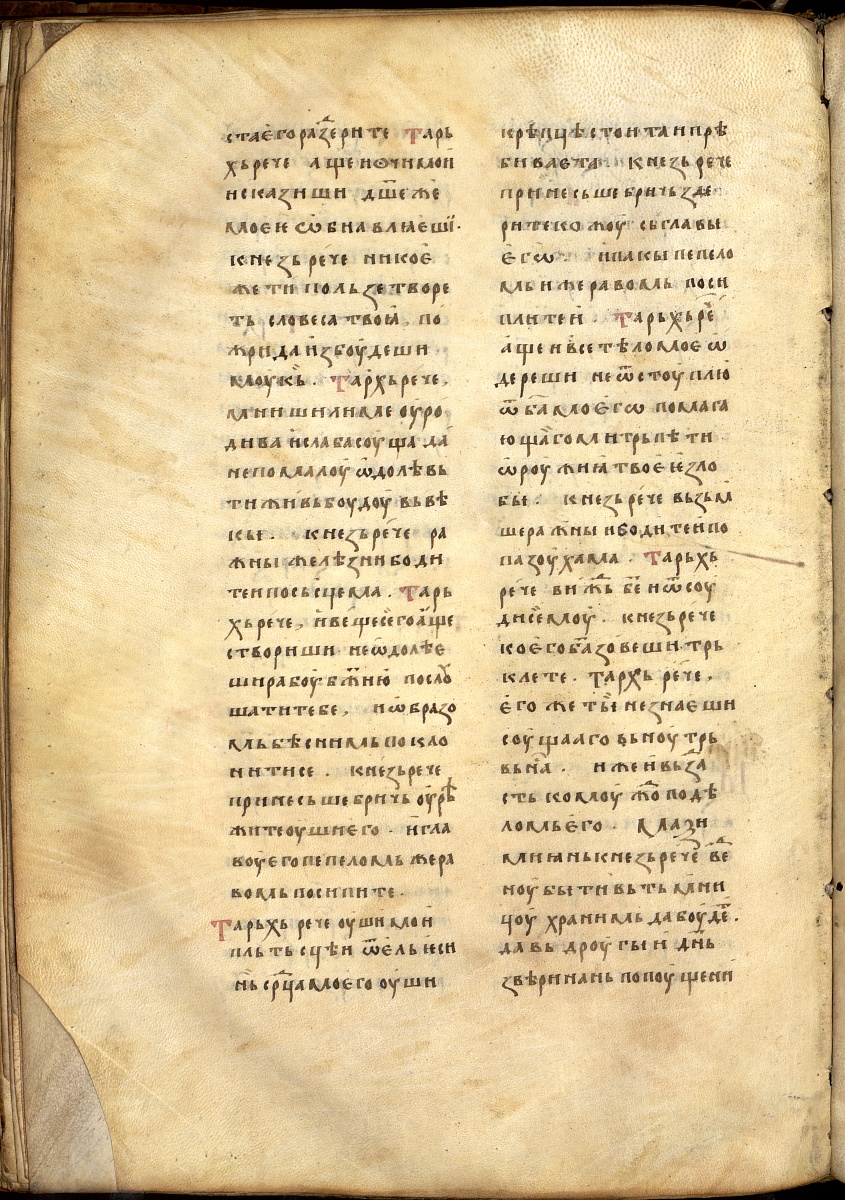 ста его раꙁⷣерите Тарь
хь рече аще и ѡчи мои
исказиши дш҃е же
мое не ѡбнавлꙗеши·
кнеꙁь рече никое
же ти польꙁе творе
ть словеса твоꙗ, по
жри да иꙁбоудеши
моукь. Тархь рече,
мниши ли ме оуро
дива и слаба соуща да
не помалоу ѡдолѣвь
ти живь боудоу вь вѣ
кы. кнеꙁь рече ра
жны желѣꙁни боди
те и по сьсцема. Тарь
хь рече, и веще сего аще
створиши не ѡдолѣе
ши рабоу бж҃ию послоу
шати тебе, и ѡбраꙁо
мь бѣснимь покло
нити се. кнеꙁь рече
принесьше бричь оурѣ
жите оуши его. и гла
воу его пепеломь жера
вомь посипите.
Тарьхь рече оуши мои
пльтьсцѣи ѿель еси
нь срⷣца моего оуши
крѣпцѣ стоита и прѣ
биваета кнеꙁь рече
принесьше бричь ꙁде
рите кожоу сь главы
его. и пакы пепело
мь и жеравомь поси
плите и. Тарьхь рⷱе
аще и все тѣло мое ѡ
дереши не ѿстоуплю
ѿ ба҃ моего помага
ющаго ми трьпѣти
ѡроужиꙗ твое ꙁло
бы. кнеꙁь рече вьꙁьм
ше ражны и бодите и по
паꙁоухама. Тарьхь
рече вижⷣь бе҃ и ѿсоу
ди семоу. кнеꙁь рече
коего ба҃ ꙁовеши трь
клете. Тархь рече,
его же ты не ꙁнаеши
соущааго вьноутрь
вьна. иже и вьꙁⷣа
сть комоуждо по дѣ
ломь его. Маѯи
миꙗнь кнеꙁь рече ве
ноу быти вь тьмни
цоу хранимь да боудеⷮ.
да вь дроугы и дн҃ь
ꙁвѣри нань попоущени